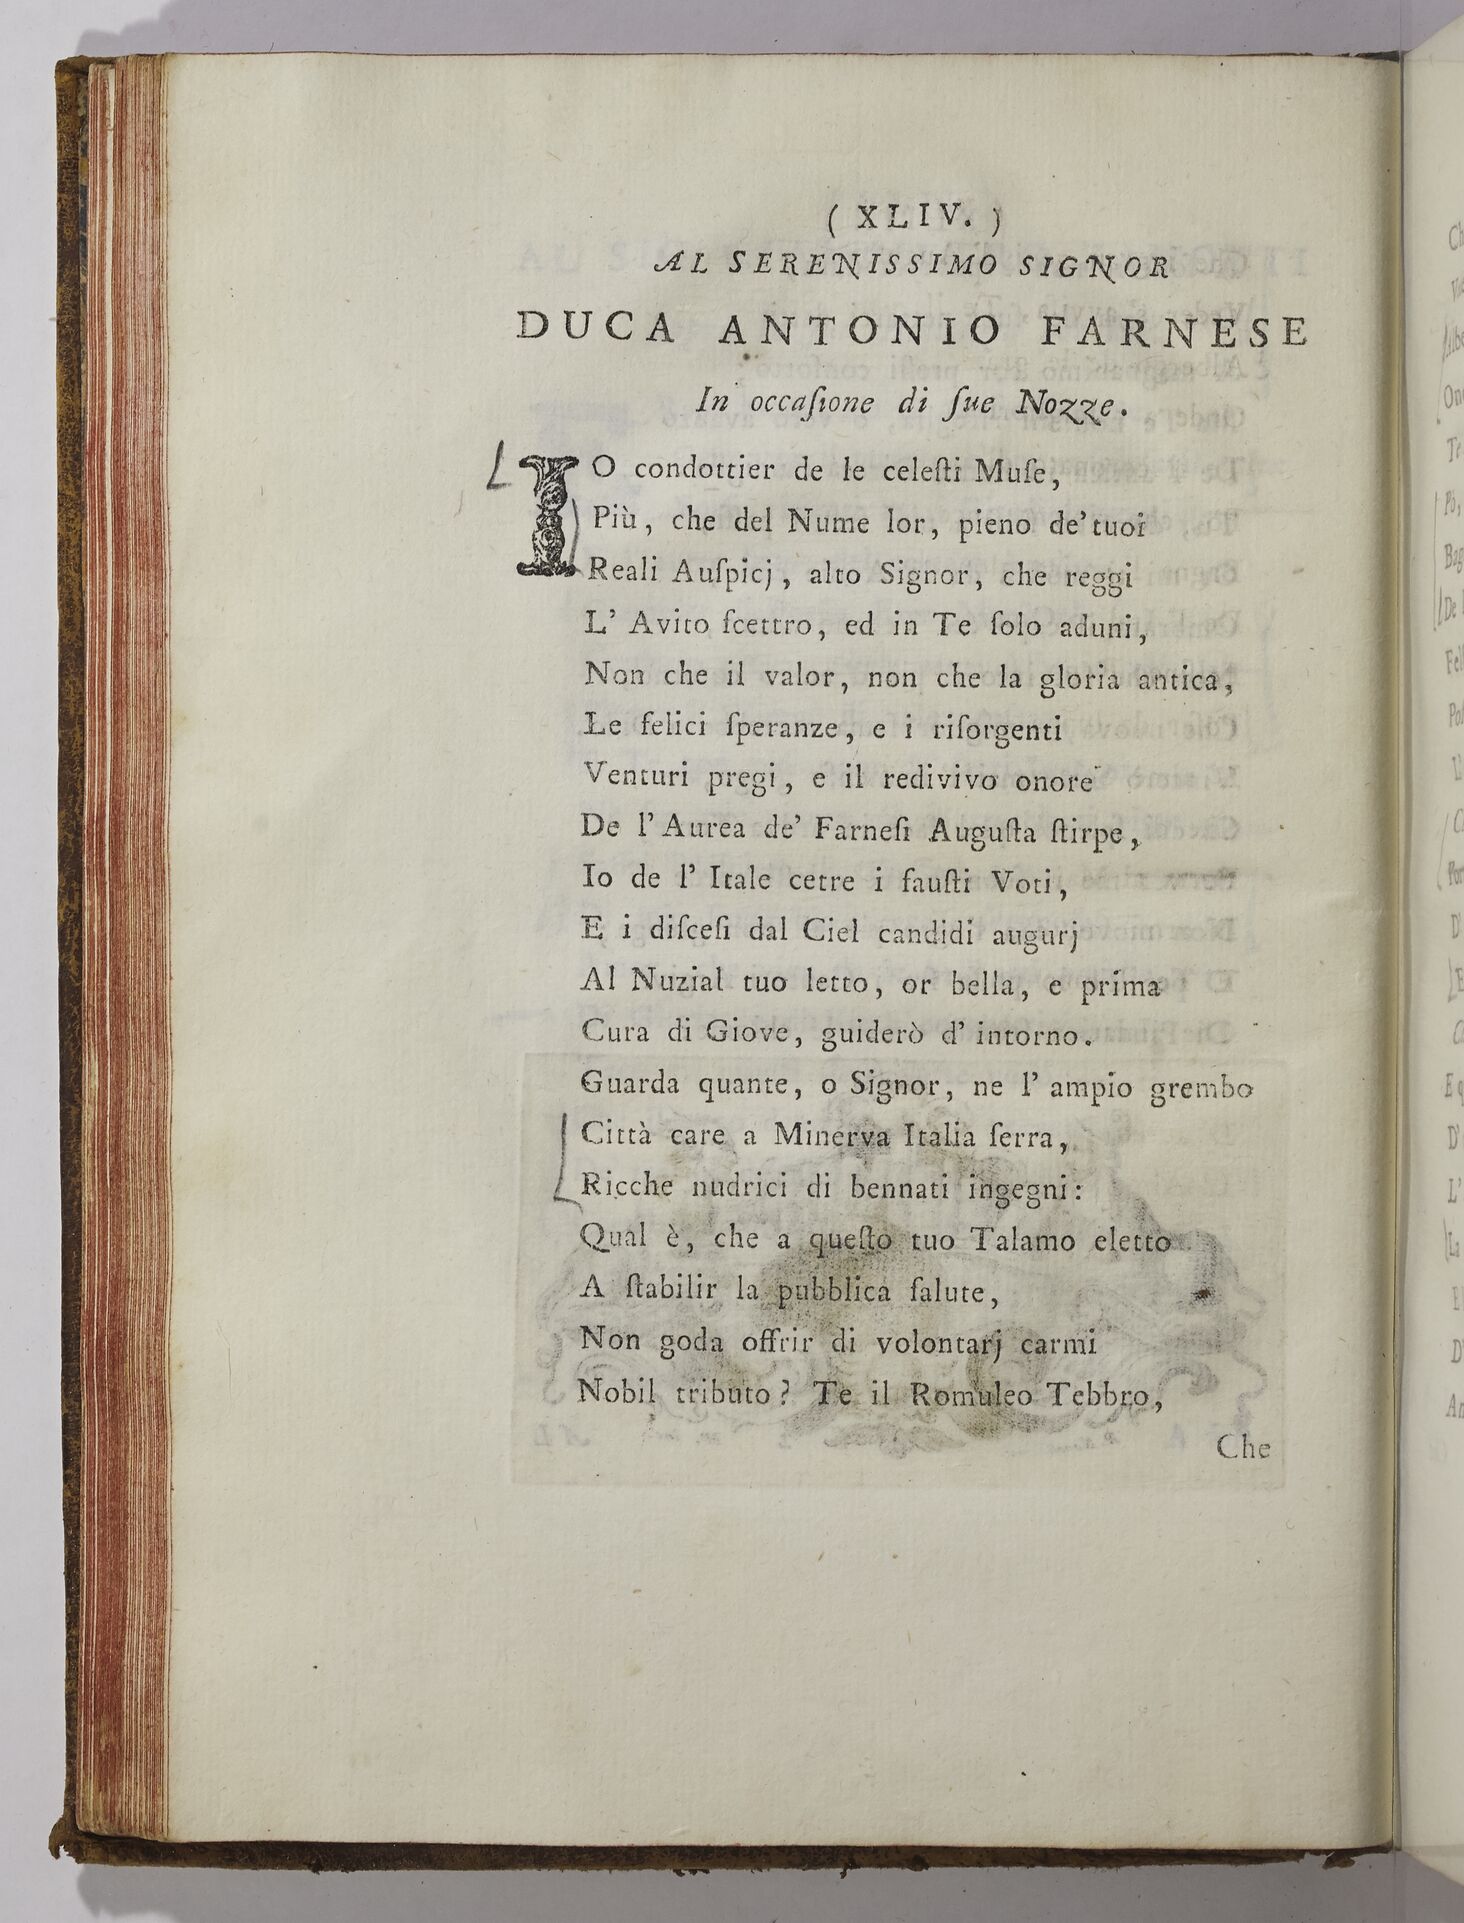 ( XLIV. )
AL SERENISSIMO SIGNOR
DUCA ANTONIO FARNESE
In occaſione di ſue Nozze.
IO condottier de le celeſti Muſe,
Più, che del Nume lor, pieno de' tuoi
Reali Auſpicj, alto Signor, che reggi
L' Avito ſcettro, ed in Te ſolo aduni,
Non che il valor, non che la gloria antica,
Le felici ſperanze, e i riſorgenti
Venturi pregi, e il redivivo onore
De l' Aurea de' Farneſi Auguſta ſtirpe,
Io de l' Itale cetre i fauſti Voti,
E i diſceſi dal Ciel candidi augurj
Al Nuzial tuo letto, or bella, e prima
Cura di Giove, guiderò d' intorno.
Guarda quante, o Signor, ne l' ampio grembo
Città care a Minerva Italia ſerra,
Ricche nudrici di bennati ingegni:
Qual è, che a queſto tuo Talamo eletto
A ſtabilir la pubblica ſalute,
Non goda offrir di volontarj carmi
Nobil tributo? Te il Romuleo Tebbro,
Che